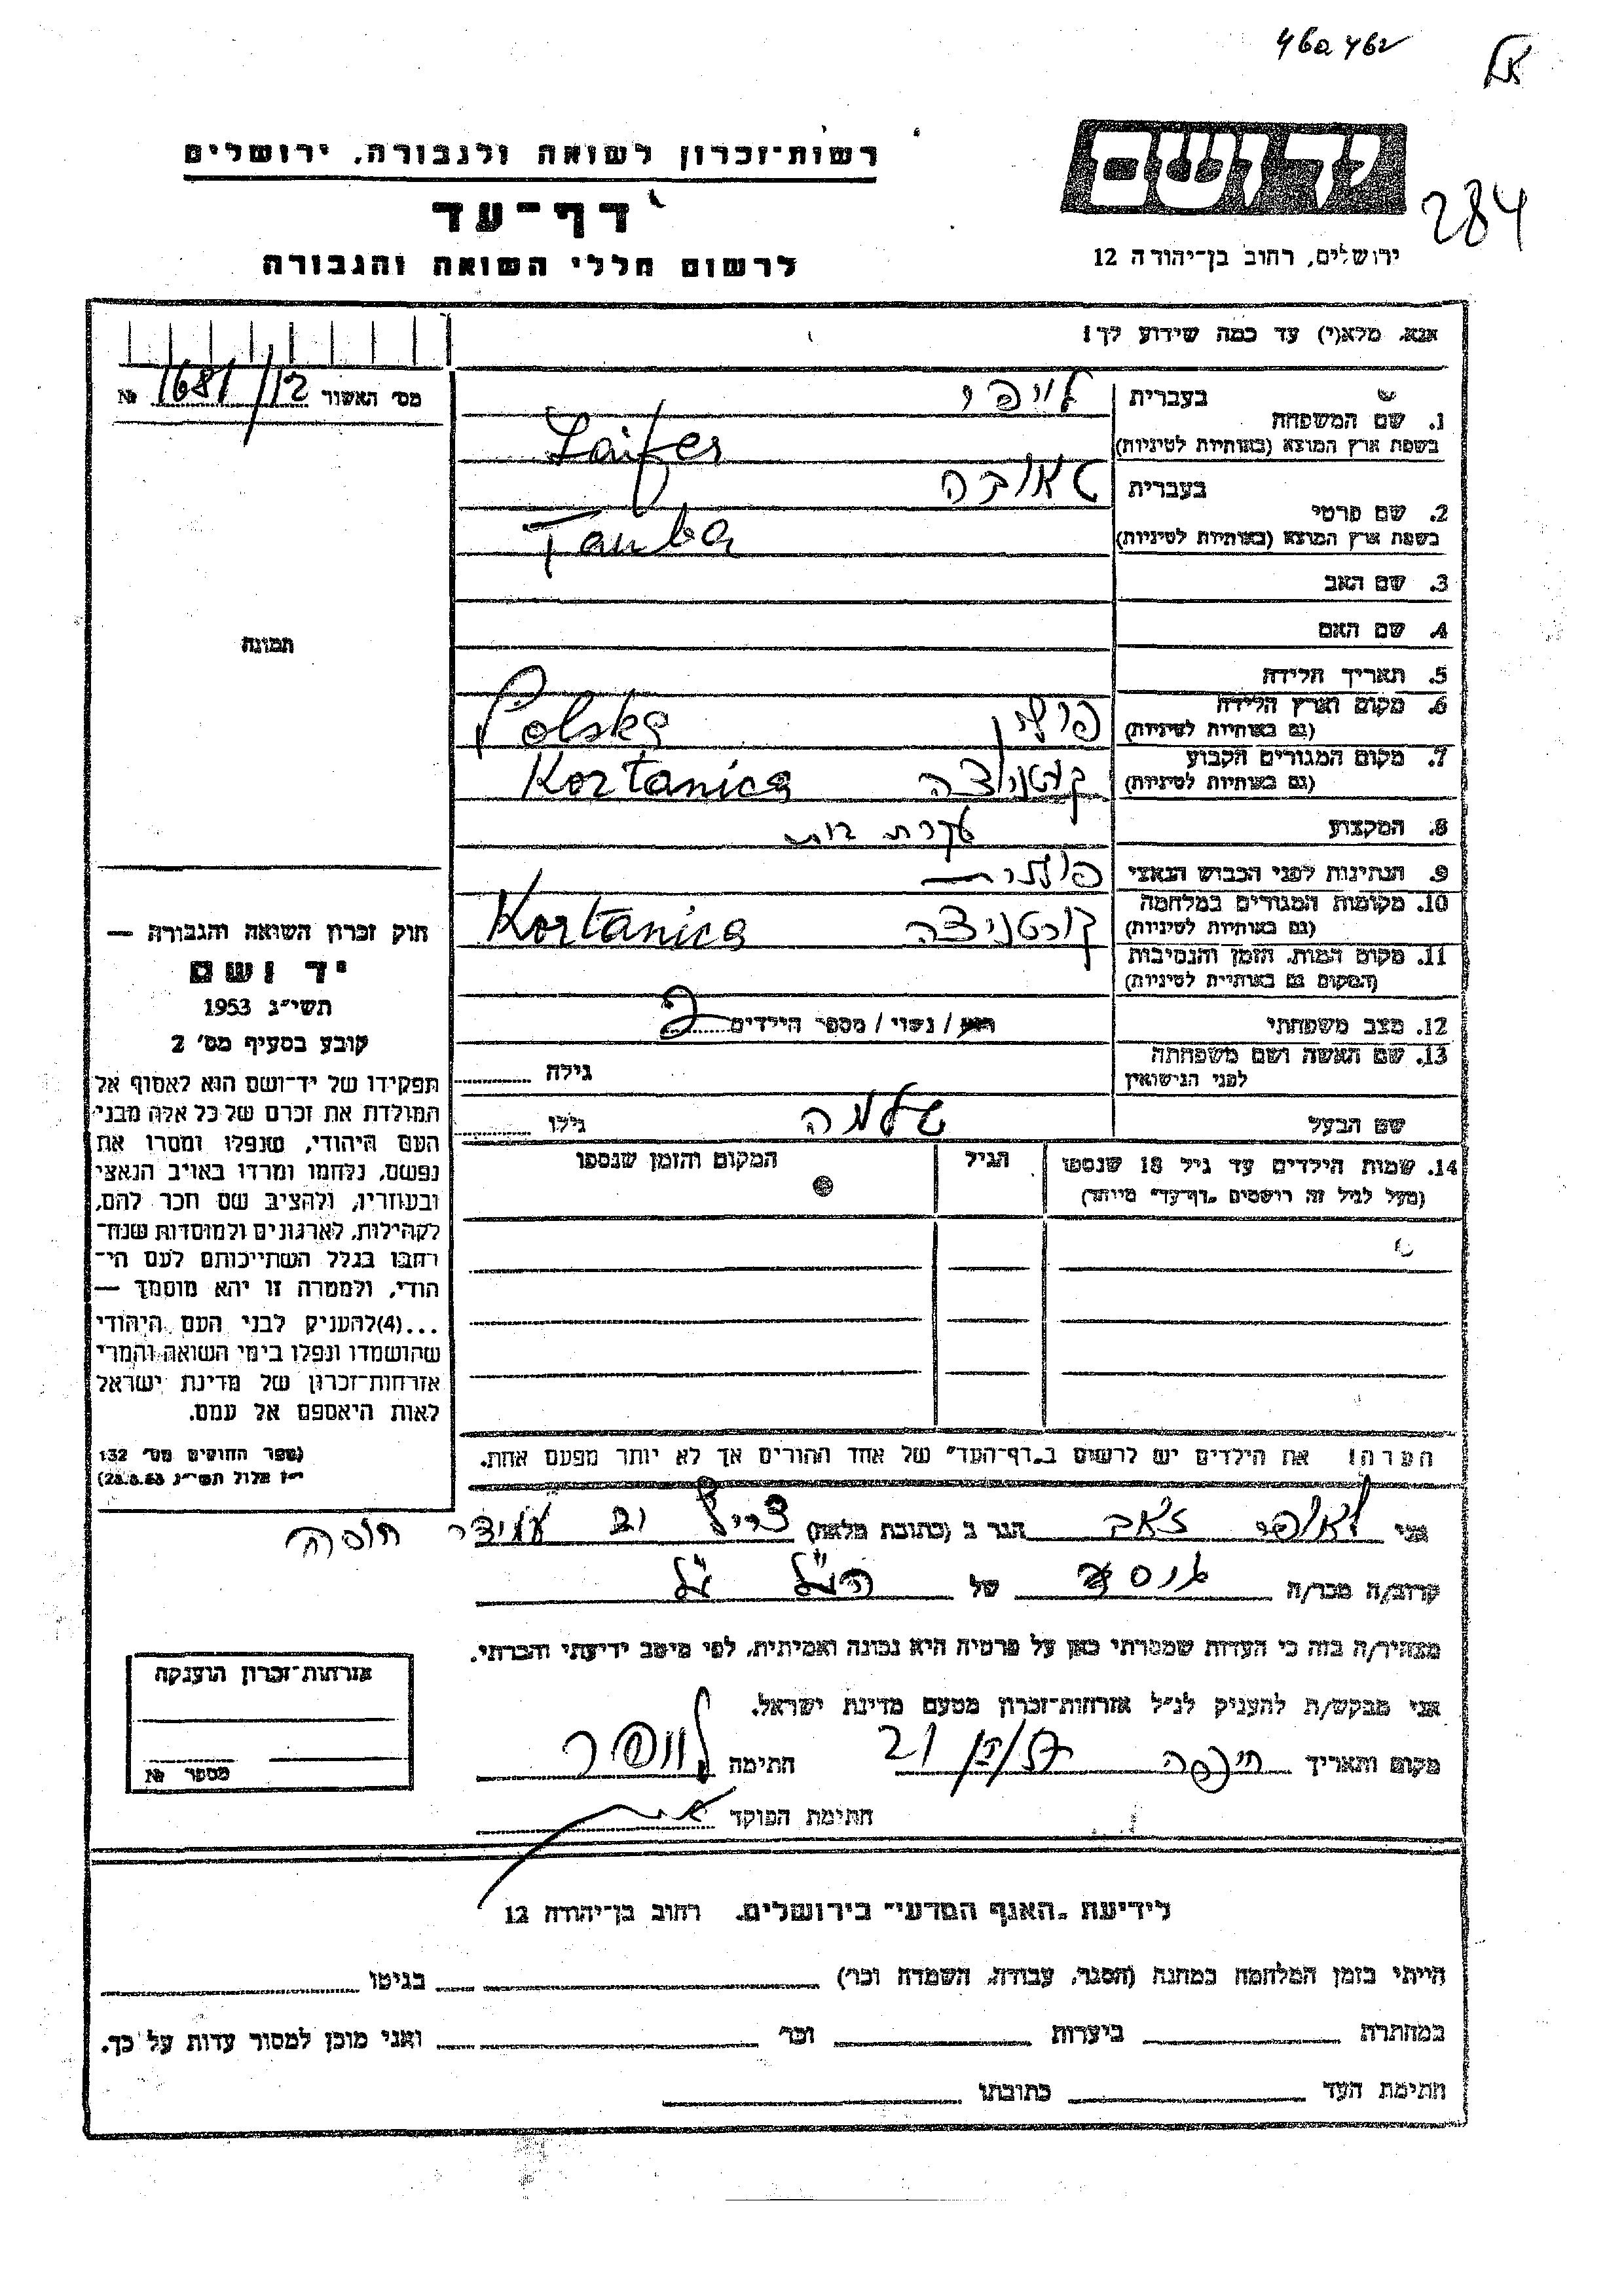 460462
רשות־זכרון לשואה ולגבורה, ירושלים
יד ושם
284
דף־עד
ירושלים, רחוב בן־יהודה 12
לרשום חללי השואה והגבורה
אנא, מלא(י) עד כמה שידוע לך!
מס׳ האשור 1681/12 №
1. שם המשפחה
בעברית
בשפת ארץ המוצא (באותיות לטיניות) Laifer
2. שם פרטי
בעברית טאובה
בשפת ארץ המוצא (באותיות לטיניות) Tauba
3. שם האב
4. שם האם
תמונה
5. תאריך הלידה
6. מקום וארץ הלידה פולין Polska
(גם באותיות לטיניות)
7. מקום המגורים הקבוע Kortanica
(גם באותיות לטיניות)
8. המקצוע עקרת בית
9. הנתינות לפני הכבוש הנאצי פולנית
10. מקומות המגורים במלחמה קורטניצה Kortanica
(גם באותיות לטיניות)
11. מקום המות, הזמן והנסיבות
(המקום גם באותיות לטיניות)
12. מצב משפחתי רוק / נשוי / מספר הילדים 2
13. שם האשה ושם משפחתה
לפני הנישואין גילה
שם הבעל שלמה גילו
14. שמות הילדים עד גיל 18 שנספו הגיל המקום והזמן שנספו
(מעל לגיל זה רושמים „דף־עד״ מיוחד)
חוק זכרון השואה והגבורה —
יד ושם
תשי״ג 1953
קובע בסעיף מס׳ 2
תפקידו של יד־ושם הוא לאסוף אל
המולדת את זכרם של כל אלה מבני
העם היהודי, שנפלו ומסרו את
נפשם, נלחמו ומרדו באויב הנאצי
ובעוזריו, ולהציב שם וזכר להם,
לקהילות, לארגונים ולמוסדות שנח־
רבו בגלל השתייכותם לעם הי־
הודי, ולמטרה זו יהא מוסמך —
...(4) להעניק לבני העם היהודי
שהושמדו ונפלו בימי השואה והמרי
אזרחות־זכרון של מדינת ישראל
לאות היאספם אל עמם.
(ספר החוקים מס׳ 132
י״ז אלול תשי״ג 28.8.53)
הערה! את הילדים יש לרשום ב„דף־העד״ של אחד ההורים אך לא יותר מפעם אחת.
אני זאב הגר ב (כתובת מלאה) חיפה
קרוב/ה מכר/ה של הנ״ל
מצהיר/ה בזה כי העדות שמסרתי כאן על פרטיה היא נכונה ואמיתית, לפי מיטב ידיעתי והכרתי.
אני מבקש/ת להעניק לנ״ל אזרחות־זכרון מטעם מדינת ישראל.
מקום ותאריך חיפה חתימה לייפר
חתימת הפוקד
אזרחות־זכרון הוענקה
מספר №
לידיעת „האגף המדעי״ בירושלים, רחוב בן־יהודה 12
הייתי בזמן המלחמה במחנה (הסגר, עבודה, השמדה וכו׳) בגיטו
במחתרת ביערות וכו׳ ואני מוכן למסור עדות על כך.
חתימת העד כתובתו